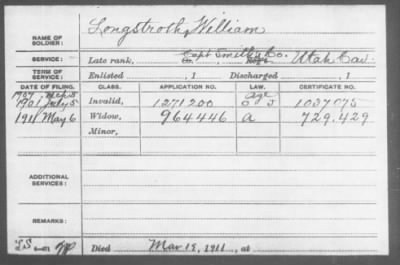 NAME OF SOLDIER: Longstroth, William
SERVICE: Late rank, Capt. Smith's Co. Utah Cav.
TERM OF SERVICE: Enlisted , 1 , Discharged , 1
DATE OF FILING. CLASS. APPLICATION NO. LAW. CERTIFICATE NO.
1907 Mch 5 Age
1901 July 5 Invalid, 1271200 1037075
1911 May 6 Widow, 964446 a 729.429
Minor,
ADDITIONAL SERVICES:
REMARKS:
Died Mar 19, 1911, at